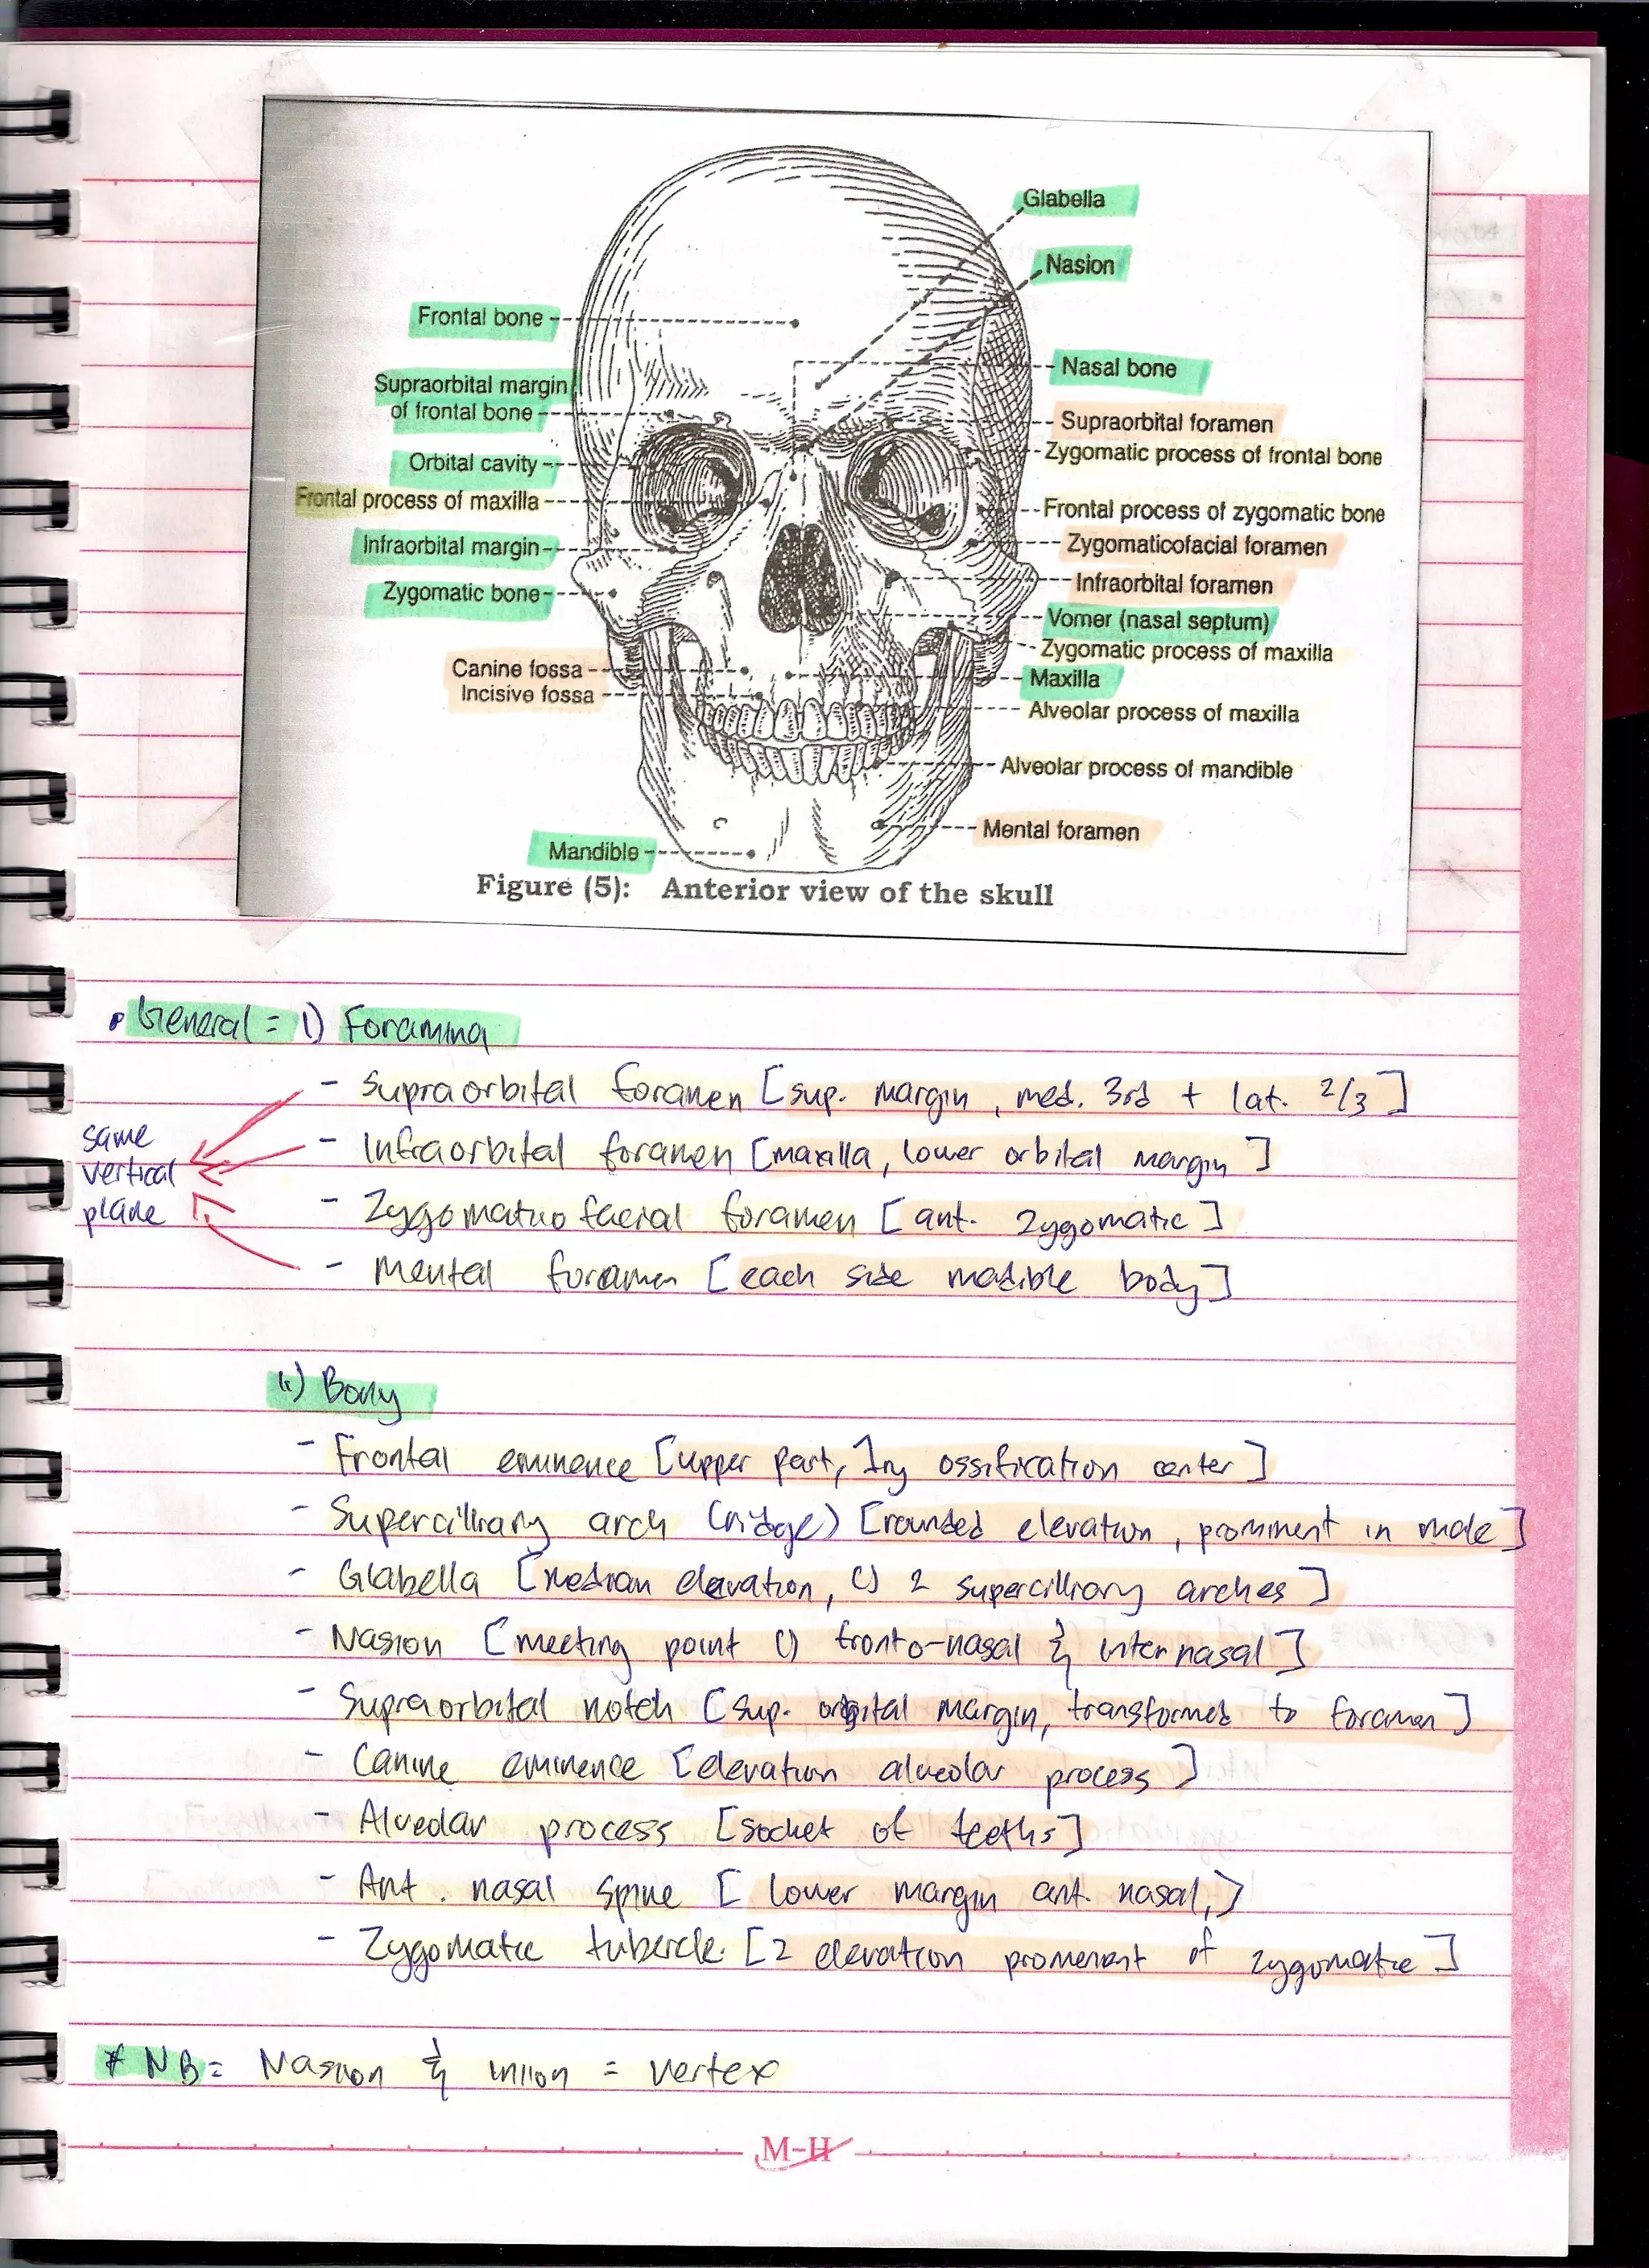 Glabella
Nasion
Frontal bone
Nasal bone
Supraorbital margin
of frontal bone
Supraorbital foramen
Zygomatic process of frontal bone
Orbital cavity
Frontal process of maxilla
Frontal process of zygomatic bone
Infraorbital margin
Zygomaticofacial foramen
Zygomatic bone
Infraorbital foramen
Vomer (nasal septum)
Zygomatic process of maxilla
Canine fossa
Maxilla
Incisive fossa
Alveolar process of maxilla
Alveolar process of mandible
Mental foramen
Mandible
Figure (5): Anterior view of the skull
• General = 1) Foramina
- Supraorbital foramen [sup. margin, med. 3rd + lat. 2/3]
same
vertical
plane
- Infraorbital foramen [maxilla, lower orbital margin]
- Zygomatico facial foramen [ant. zygomatic]
- Mental foramen [each side madible body]
ii) Bony
- Frontal eminence [upper part, 1ry ossification center]
- Supercilliary arch (ridge) [rounded elevation, prominent in male]
- Glabella [median elevation, () 2 supercilliary arches]
- Nasion [meeting point () fronto-nasal & internasal]
- Supraorbital notch [sup. orbital margin, transformed to foramen]
- Canine eminence [elevation alveolar process]
- Alveolar process [socket of teeths]
- Ant. nasal spine [lower margin ant. nasal,]
- Zygomatic tubercle [2 elevation promenent of zygomatic]
* NB = Nasion & inion = vertex
M-H